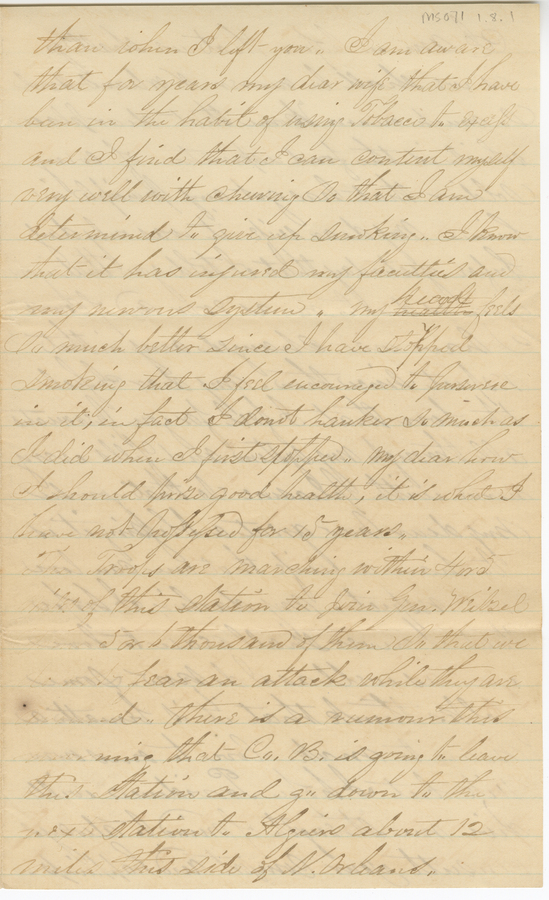 MS071 1.8.1
than when I left you,, I am aware
that for years my dear wife that I have
been in the habit of using Tobacco to
and I find that I can content myself
very well with chewing So that I am
determined to give up smoking,, I know
that it has injured my faculties and
my nervous system ,, my feels
So much better since I have stopped
smoking that I feel encouraged to
in it, in fact I donot hanker so much as
I did when I first stopped,, my dear how
I should prize good health, it is what I
have not for 15 years,,
The Troops are marching within 4 or 5
of this station to join Gen.
5 or 6 thousand of them So that we
fear an attack while they are
there is a rumour this
ning that Co. B. is going to leave
this Station and go down to the
next station to Algiers about 12
miles this side of N. Orleans.